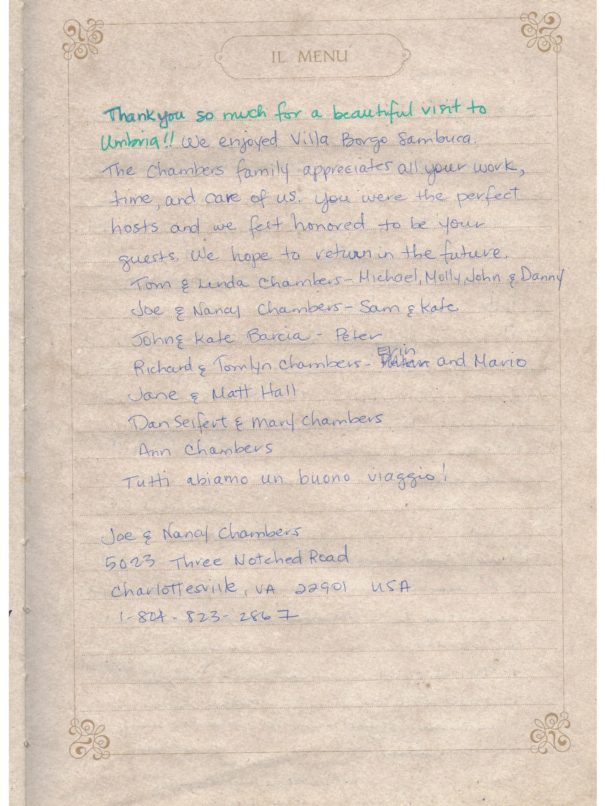 IL MENU
Thank you so much for a beautiful visit to
Umbria!! We enjoyed Villa Borgo Sambuca.
The Chambers family appreciates all your work,
time, and care of us. You were the perfect
hosts and we felt honored to be your
guests. We hope to return in the future.
Tom & Linda Chambers - Michael, Molly, John & Danny
Joe & Nancy Chambers - Sam & Kate
John & Kate Barcia - Peter
Richard & Tomlyn Chambers - Erin and Mario
Jane & Matt Hall
Dan Seifert & Mary Chambers
Ann Chambers
Tutti abiamo un buono viaggio!
Joe & Nancy Chambers
5023 Three Notched Road
Charlottesville, VA 22901 USA
1-804-823-2867